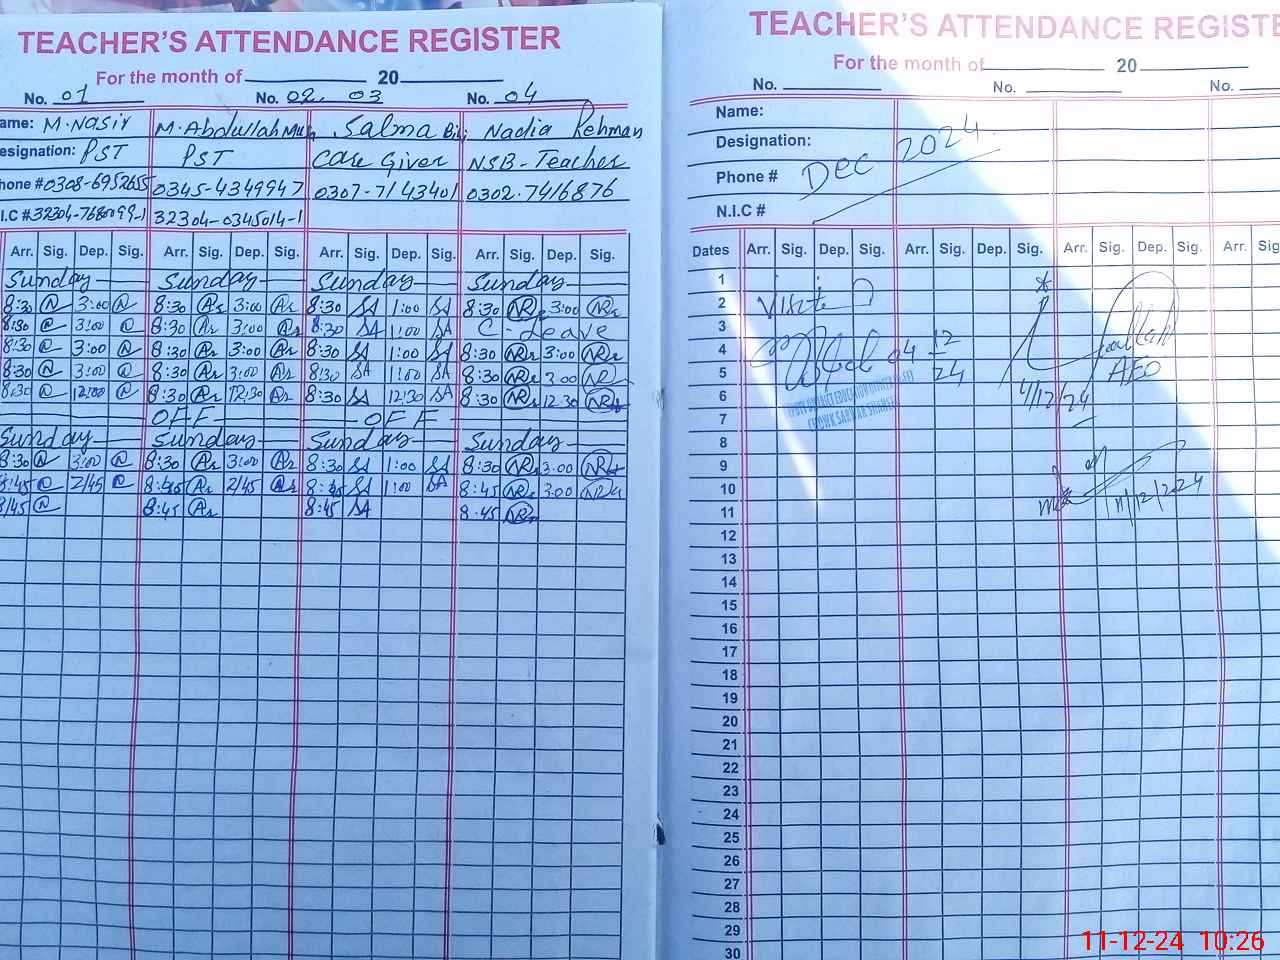 TEACHER'S ATTENDANCE REGISTER
For the month of 20
No. 01 No. 02 03 No. 04
ame: M. Nasir M. Abdullah Salma Bi Nadia Rehman
esignation: PST PST Care Giver NSB-Teacher
hone #0308-6952655 0345-4349947 0307-7143401 0302-7416876
.I.C # 32304-7680099-1 32304-0345014-1
Arr. Sig. Dep. Sig. Arr. Sig. Dep. Sig. Arr. Sig. Dep. Sig. Arr. Sig. Dep. Sig.
Sunday Sunday Sunday Sunday
8:30 3:00 8:30 3:00 8:30 SA 1:00 SA 8:30 NR 3:00 NR
8:30 3:00 8:30 3:00 8:30 SA 1:00 SA C-Leave
8:30 3:00 8:30 3:00 8:30 SA 1:00 SA 8:30 NR 3:00 NR
8:30 3:00 8:30 3:00 8:30 SA 11:00 SA 8:30 NR 3.00 NR
8:30 12:00 8:30 12:30 8:30 SA 12:30 SA 8:30 NR 12.30 NR
OFF OFF
Sunday Sunday Sunday Sunday
8:30 3:00 8:30 3:00 8:30 SA 1:00 SA 8:30 NR 3.00 NR
8:45 2/45 8:45 2/45 8:45 SA 1:00 SA 8:45 NR 3:00 NR
8/45 8:45 8:45 SA 8.45 NR
TEACHER'S ATTENDANCE REGISTE
For the month of 20
No. No. No.
Name:
Designation:
Phone #
N.I.C #
Dec 2024
Dates Arr. Sig. Dep. Sig. Arr. Sig. Dep. Sig. Arr. Sig. Dep. Sig. Arr. Sig
1
2 Visit
3
4 04 12
5 24 AEO
6 4/12/24
7
8
9
10
11 11/12/2024
12
13
14
15
16
17
18
19
20
21
22
23
24
25
26
27
28
29
30
11-12-24 10:26